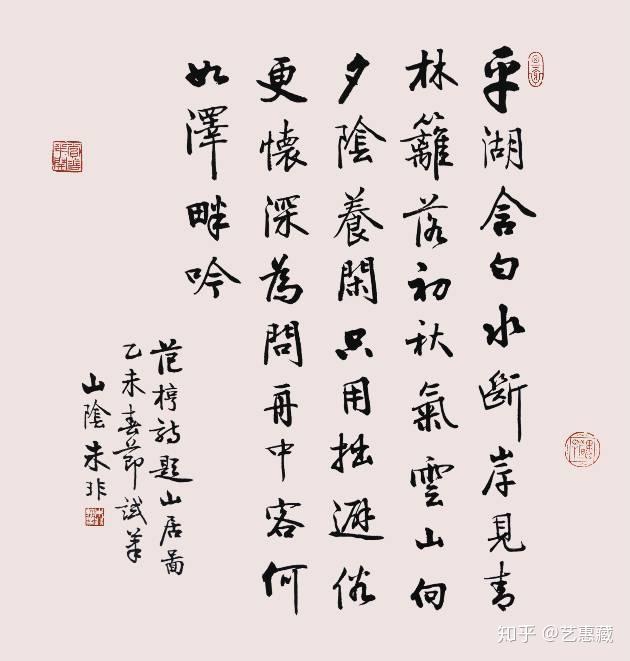 平湖含白水斷岸見青
林籬落初秋氣雲山向
夕陰養閑只用拙避俗
更懷深為問舟中客何
如澤畔吟
范梈詩題山居啚
乙未春節試筆
山陰朱非
知乎 @艺惠藏